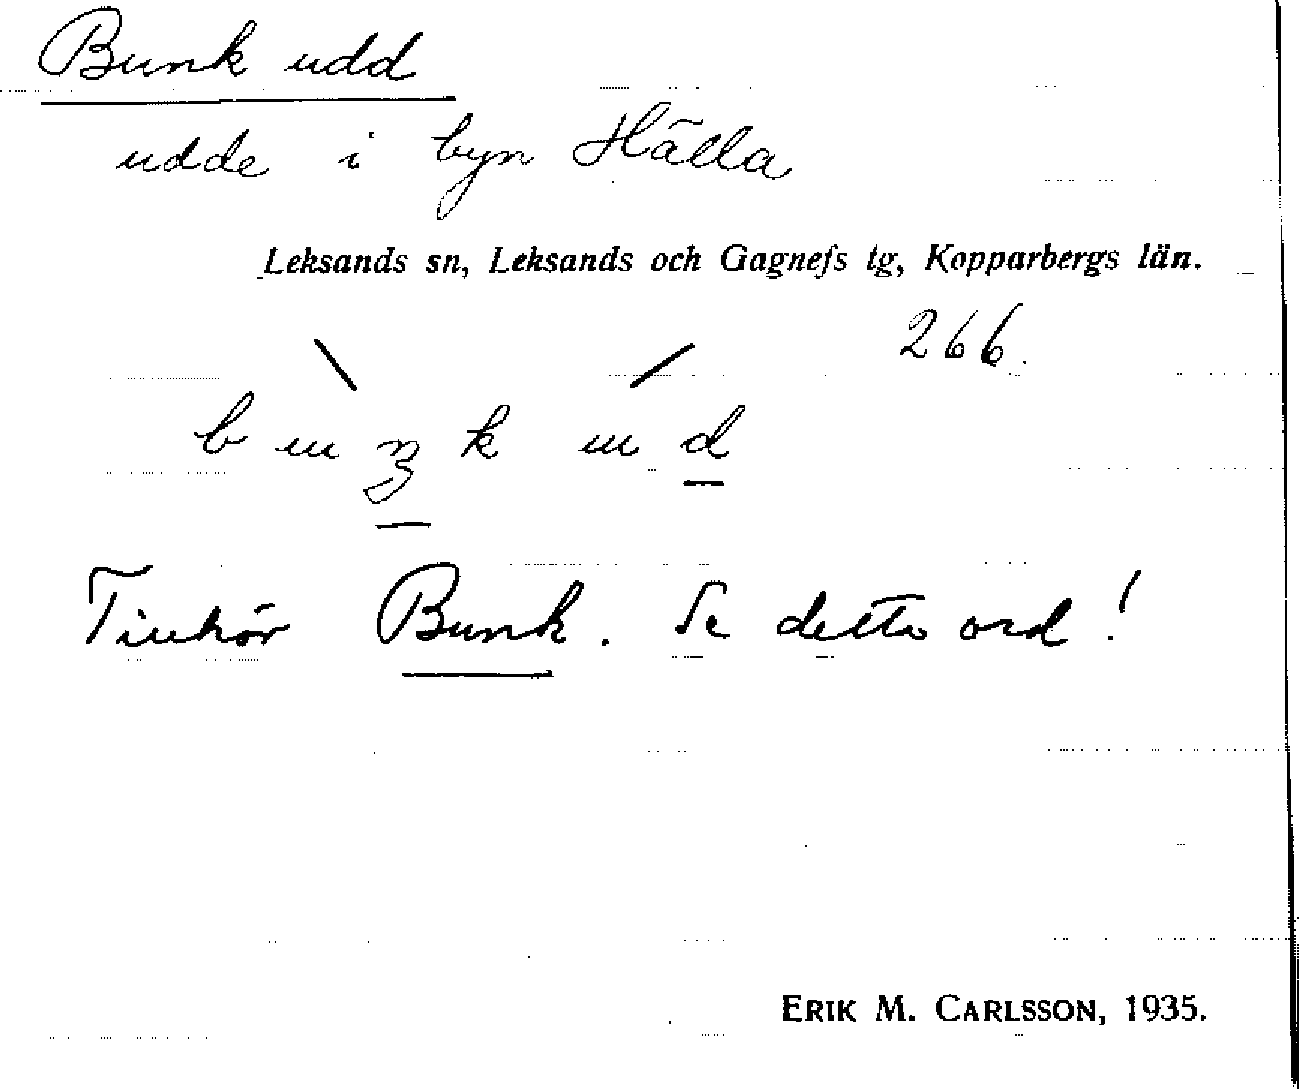 Bunk udd
udde i byn Hälla
Leksands sn, Leksands och Gagnefs tg, Kopparbergs län.
266.
b u ŋ k u d
Tillhör Bunk. Se detta ord!
ERIK M. CARLSSON, 1935.